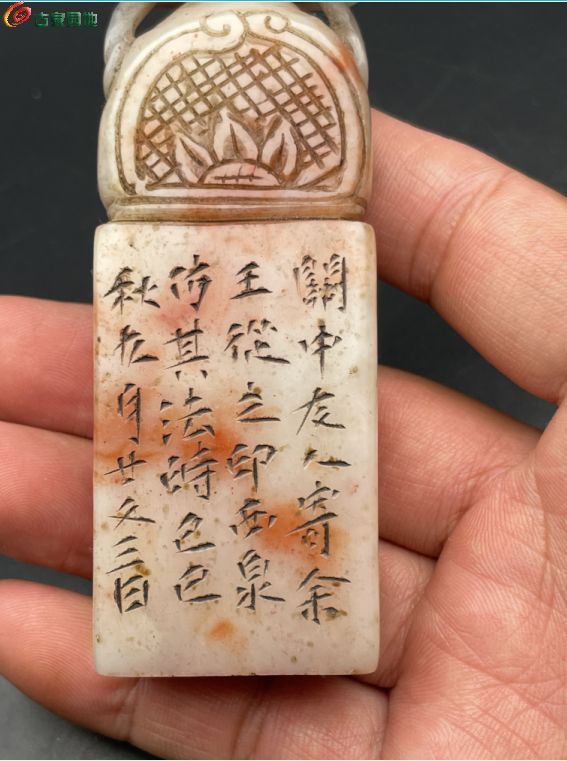 古泉园地
關中友人寄余
王從之印西泉
仿其法時
秋九月廿又三日